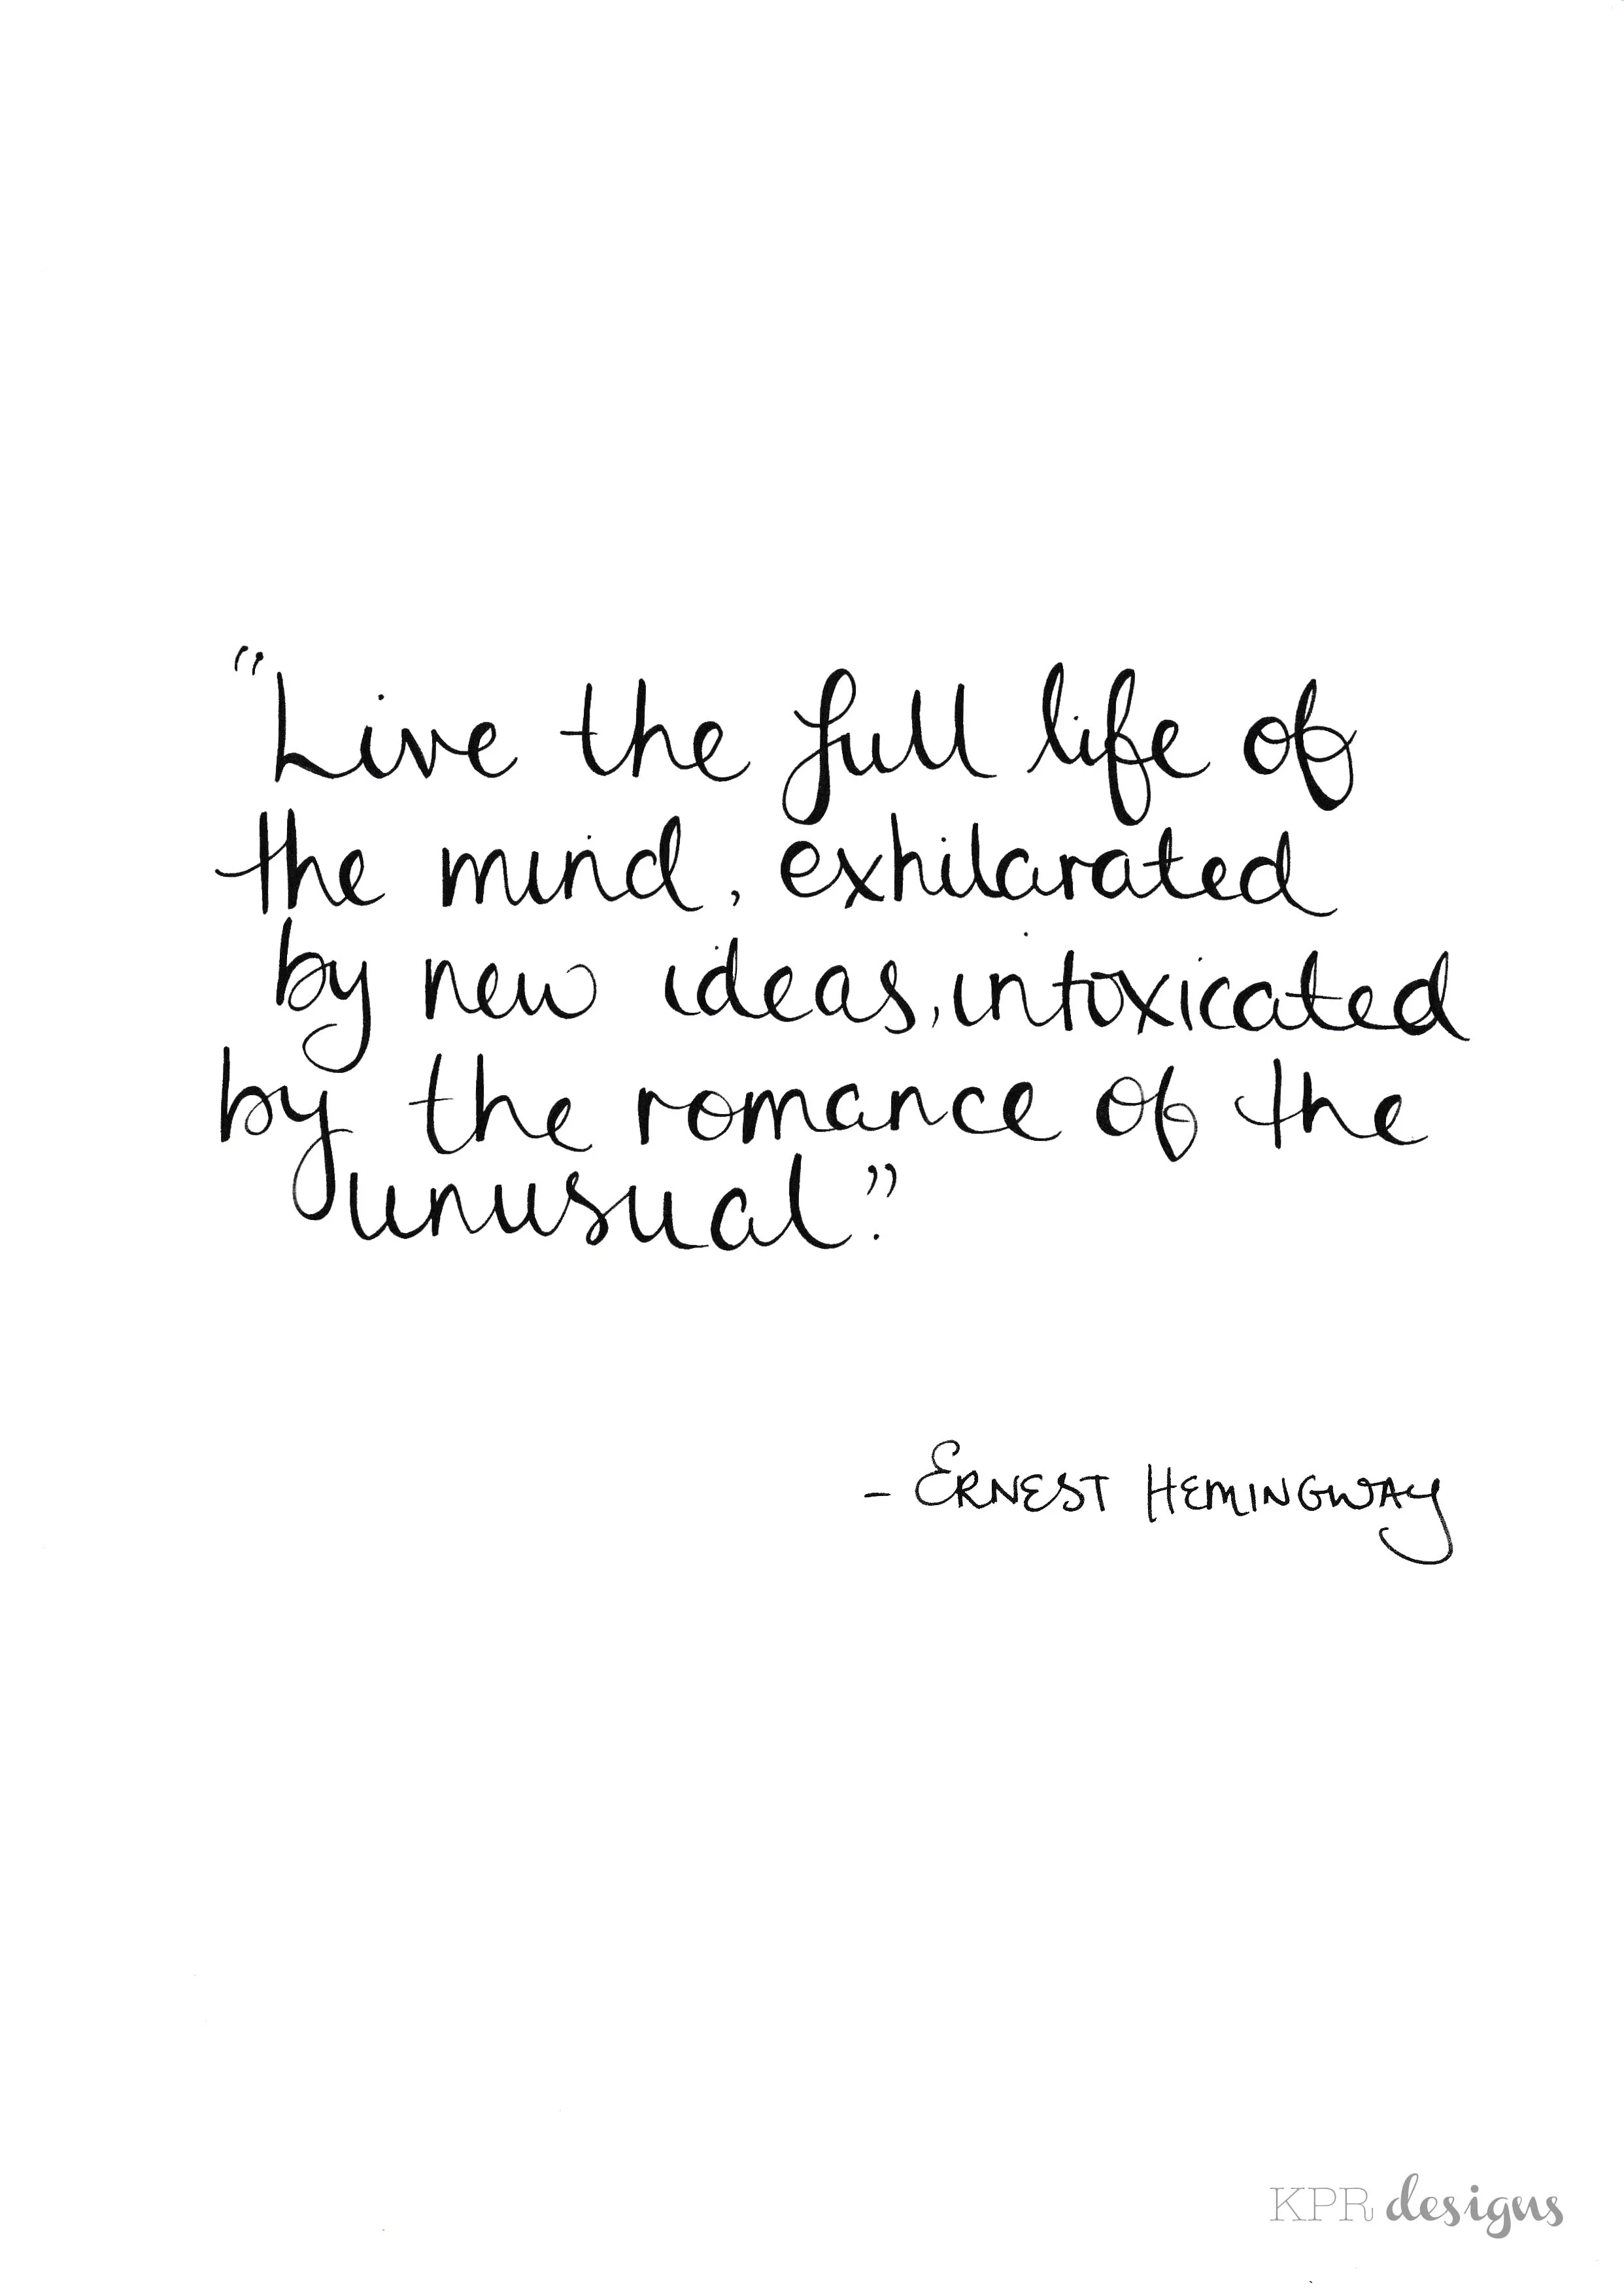 “Live the full life of
the mind, exhilarated
by new ideas, intoxicated
by the romance of the
unusual.”
- ERNEST HEMINGWAY
KPR designs